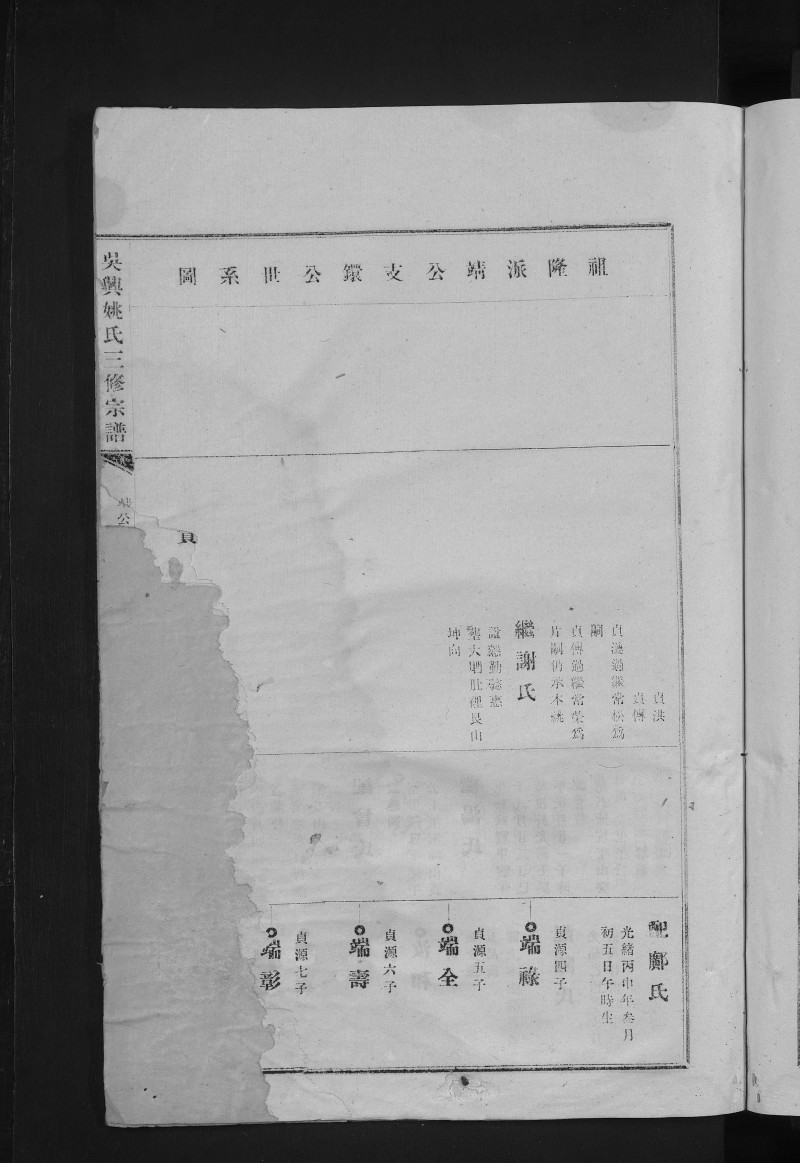 祖隆派靖公支鐶公世系圖
貞洪
貞傳
貞漣過繼常松爲
嗣
貞傳過繼常榮爲
片嗣仍承本祧
繼謝氏
諡懿勤慈惠
塟大塘肚裡艮山
坤向
貞
配鄭氏
光緒丙申年叁月
初五日午時生
貞源四子
端祿
貞源五子
端全
貞源六子
端壽
貞源七子
端彰
吳興姚氏三修宗譜
公